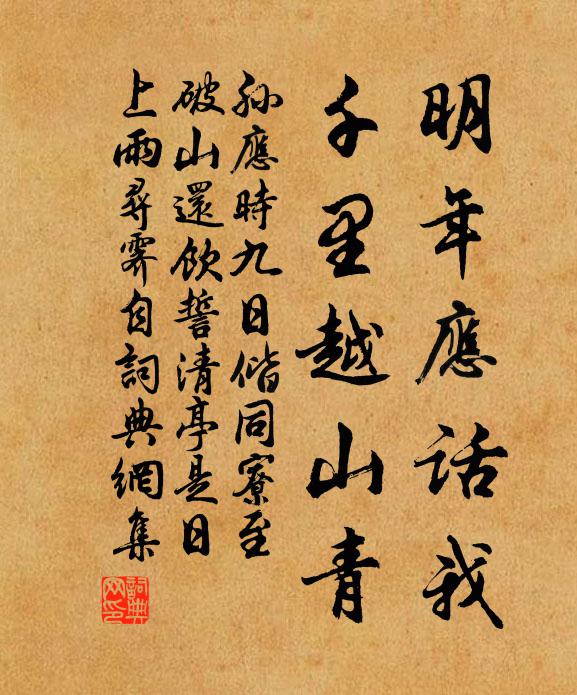 明年應話我
千里越山青
孫應時九日偕同寮至
破山還飲誓清亭是日
上雨尋霽自詞典網集
詞典
网印